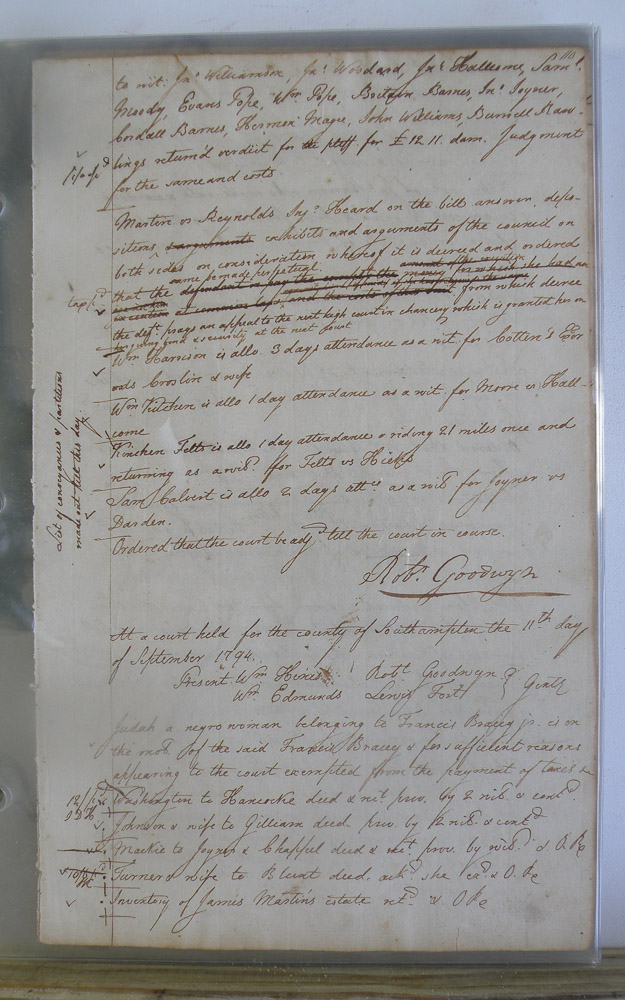 110
to wit. Jnº Williamson, Jnº Woodard, Jnº Hallcome, Samˡ
Moody, Evans Pope, Wm Pope, Boitain Barnes, Jnº Joyner,
Cordall Barnes, Hermon Magee, John Williams, Burwell Raw-
lings return'd verdict for the pltff. for £ 12. 11. dam. Judgment
for the same and costs.
Martin vs Reynolds Injⁿ Heard on the bill answer, depo-
sitions, arguments exhibits and arguments of the council on
both sides on consideration whereof it is decreed and ordered
same be made perpetual.
that the defendant pay the
from which decree
the deft. prays an appeal to the next high court in chancery which is granted her on
her giving bond & security at the next court
Wm Harrison is allo. 3 days attendance as a wit. for Cotten's Exr
vs Croslin & wife
Wm Kitchen is allo 1 day attendance as a wit. for Moore vs Hall-
come
Kinchen Felts is allo 1 day attendance & riding 21 miles once and
returning as a witˢ for Felts vs Hicks
Sam Calvert is allo 2 days attᶜᵉ as a witˢ for Joyner vs
Darden.
Ordered that the court be adjᵈ till the court in course.
Robᵗ Goodwyn
List of conveyances & partitions
made out till this day
At a court held for the county of Southampton the 11th day
of September 1794.
Present Wm Hines Robᵗ Goodwyn
Wm Edmunds Lewis Fort } Gentˢ
Judah a negro woman belonging to Francis Bracey jr. is on
the moᵗ of the said Francis Bracey & for sufficient reasons
appearing to the court exempted from the payment of taxes &c
Washington to Hancocke deed & mᵗ prov. by 2 witˢ & contᵈ
Johnson & wife to Gilliam deed prov. by 2 witˢ & contᵈ
Mackie to Joyner & Chappel deed & mᵗ prov. by witˢ & O. Re
Turner & wife to Blunt deed ackᵈ she exᵈ & O. Re
Inventory of James Martin's estate retᵈ & O Re